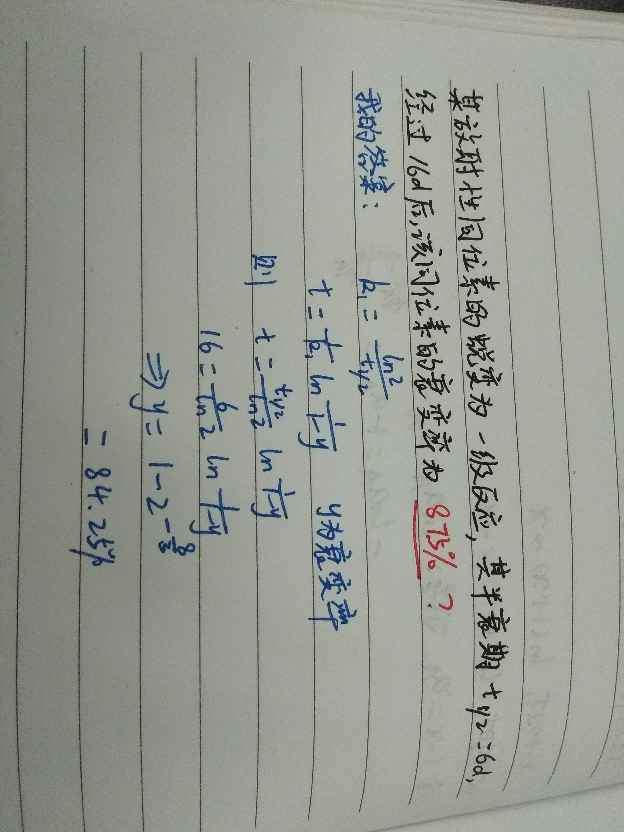 某放射性同位素的蜕变为一级反应,其半衰期 t1/2=6d,
经过16d后,该同位素的衰变率为 87.5% ?
我的答案: k₁ = ln2/t1/2
t = 1/k₁ ln 1/(1-y) y为衰变率
则 t = t1/2/ln2 ln 1/(1-y)
16 = 6/ln2 ln 1/(1-y)
⇒ y = 1-2^(-8/3)
= 84.25%